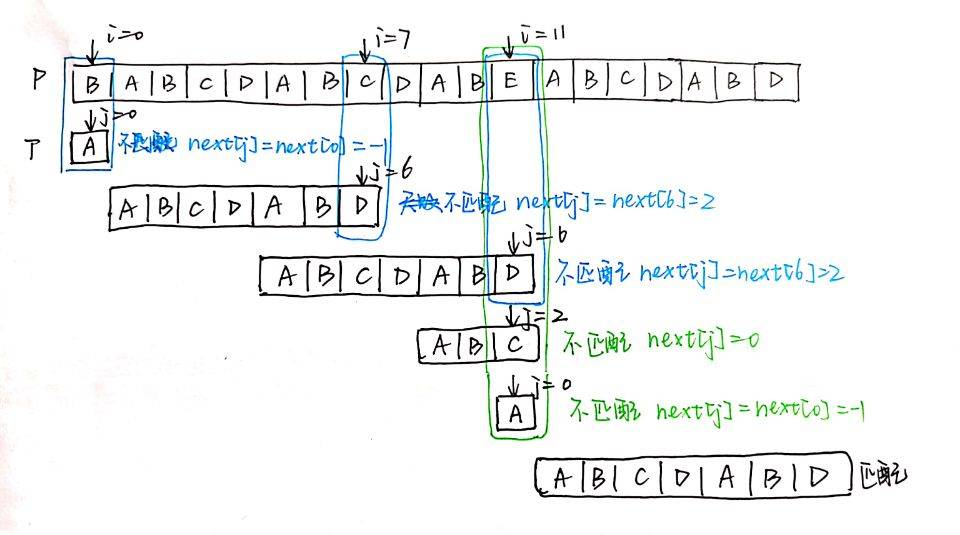 i=0 i=7 i=11
P B A B C D A B C D A B E A B C D A B D
j=0
T A 不匹配 next[j]=next[0]=-1
j=6
A B C D A B D 不匹配 next[j]=next[6]=2
j=6
A B C D A B D 不匹配 next[j]=next[6]=2
j=2
A B C 不匹配 next[j]=0
j=0
A 不匹配 next[j]=next[0]=-1
A B C D A B D 匹配